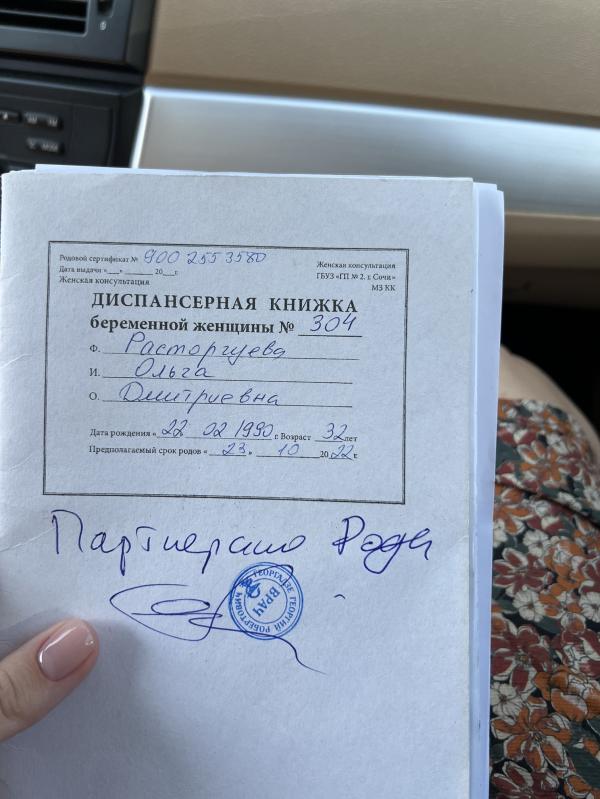 Родовой сертификат № 900 2553580
Дата выдачи «___» ______ 20___г.
Женская консультация
Женская консультация
ГБУЗ «ГП № 2. г. Сочи»
МЗ КК
ДИСПАНСЕРНАЯ КНИЖКА
беременной женщины № 304
Ф. Расторгуева
И. Ольга
О. Дмитриевна
Дата рождения « 22 02 1990 г. Возраст 32 лет
Предполагаемый срок родов « 23 » 10 20 22 г.
Партнерские Роды
ГЕОРГАДЗЕ ГЕОРГИЙ РОБЕРТОВИЧ
ВРАЧ